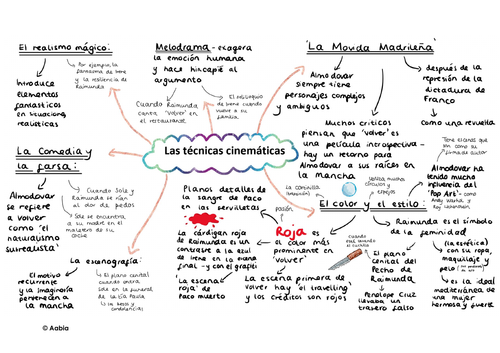 El realismo mágico:
Por ejemplo, la
fantasma de Irene
y la resiliencia de
Raimunda
Introduce
elementos
fantásticos
en situaciones
realísticas
Melodrama - exagera
la emoción humana
y hace hincapié al
argumento
Cuando Raimunda
canta 'volver' en
el restaurante
El
de Irene cuando
vuelve a su
familia.
'La Movida Madrileña'
Almodovar
siempre tiene
personajes complejos
y ambiguos
después de la
represión de la
dictadura de
Franco
Como una revuelta
Muchos críticos
piensan que 'volver' es
una película introspectiva -
hay un retorno para
Almodovar a sus raíces en
la mancha
Las técnicas cinemáticas
La Comedia y
la farsa:
Almodovar
se refiere
a volver
como 'el
naturalismo
surrealista'
Cuando Sole y
Raimunda se ríen
al olor de pedos
Sole se encuentra
a su madre en el
maletero de su
coche
La escenografía:
El motivo
recurrente
y la imaginería
pertenecen a
la mancha
El plano cenital
cuando entra
Sole en el funeral
de la tía Paula
La besos y
condolencias
Planos detalles de
la sangre de Paco
en servilletas
La cárdigan roja
de Raimunda es un
contraste a la azul
de Irene en la escena
final - y con el grafís
'La escena
roja' de
Paco muerto
pasión
Roja es
el color más
prominente en
'volver'
La escena primera de
volver hay 'el travelling'
y los créditos son rojos
El color y el estilo:
Almodovar ha
tenido mucho
influencia del
'Pop Art' -
Andy Warhol y
Roy Lichenstein
Raimunda es el símbolo
de la feminidad
(la estética)
con su ropa,
maquillaje y
pelo
es la ideal
mediterránea de
una mujer
hermosa y fuerte
El plano
cenital del
Pecho de
Raimunda
Penelope Cruz
llevaba un
trasero falso
© Aabia